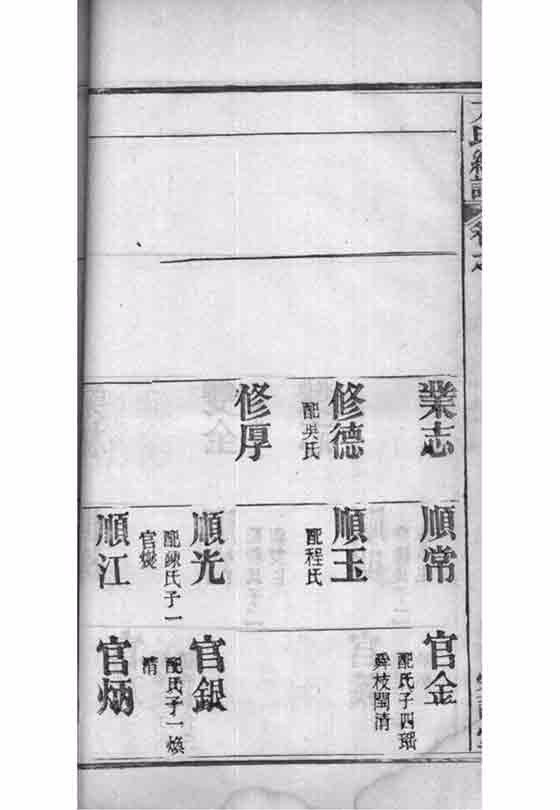 業志
修德
配吳氏
修厚
順常
順玉
配程氏
順光
配陳氏子一
官燮
順江
官金
配氏子四瑶
舜枝閏清
官銀
配氏子一煥
清
官炳